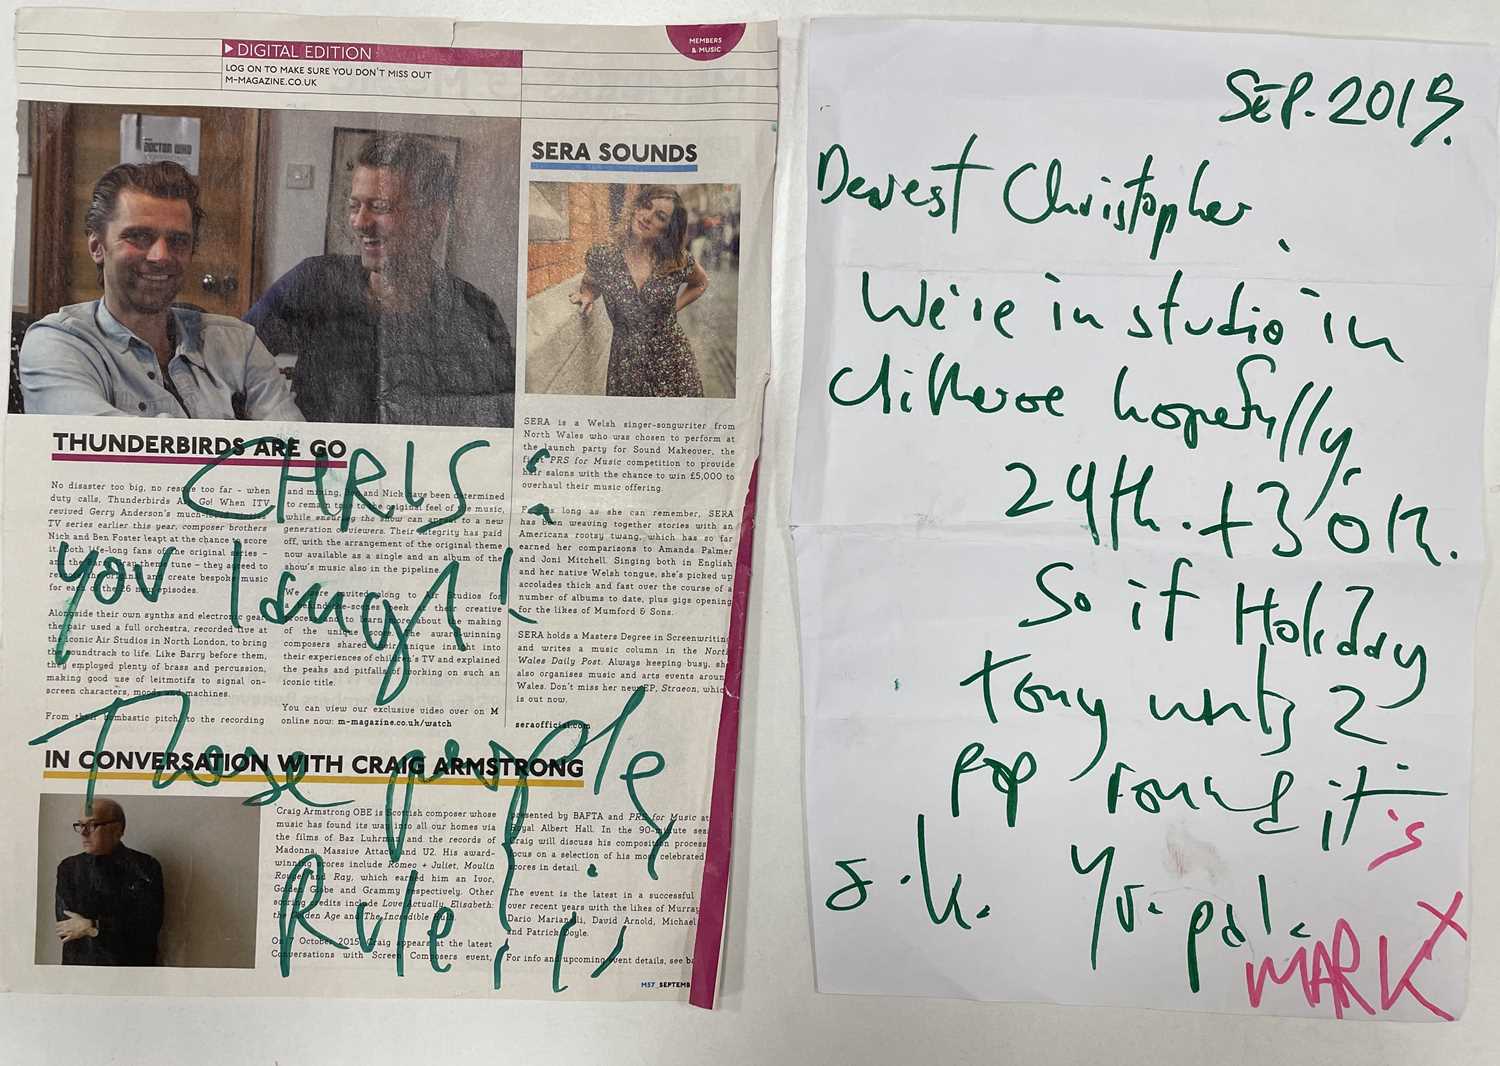 DIGITAL EDITION
LOG ON TO MAKE SURE YOU DON'T MISS OUT
M-MAGAZINE.CO.UK
MEMBERS
& MUSIC
DOCTOR WHO
THUNDERBIRDS ARE GO
No disaster too big, no rescue too far – when
duty calls, Thunderbirds Are Go! When ITV
revived Gerry Anderson's
TV series earlier this year, composer brothers
Nick and Ben Foster leapt at the chance to score
it. Both life-long fans of the original series –
and the Barry Gray theme tune – they agreed to
and create bespoke music
for each of the 26 new episodes.
Alongside their own synths and electronic gear
the pair used a full orchestra, recorded live at
the iconic Air Studios in North London, to bring
the soundtrack to life. Like Barry before them,
they employed plenty of brass and percussion,
making good use of leitmotifs to signal on-
screen characters, moods and machines.
From their bombastic pitch, to the recording
and mixing, Ben and Nick have been determined
to remain true to the original feel of the music,
while ensuring the show can appeal to a new
generation of viewers. Their integrity has paid
off, with the arrangement of the original theme
now available as a single and an album of the
show's music also in the pipeline.
We were invited along to Air Studios for
a behind-the-scenes peek at their creative
process and to learn more about the making
of the unique score. The award-winning
composers shared their unique insight into
their experiences of children's TV and explained
the peaks and pitfalls of working on such an
iconic title.
You can view our exclusive video over on M
online now: m-magazine.co.uk/watch
SERA SOUNDS
SERA is a Welsh singer-songwriter from
North Wales who was chosen to perform at
the launch party for Sound Makeover, the
first PRS for Music competition to provide
hair salons with the chance to win £5,000 to
overhaul their music offering.
For as long as she can remember, SERA
has been weaving together stories with an
Americana rootsy twang, which has so far
earned her comparisons to Amanda Palmer
and Joni Mitchell. Singing both in English
and her native Welsh tongue, she's picked up
accolades thick and fast over the course of a
number of albums to date, plus gigs opening
for the likes of Mumford & Sons.
SERA holds a Masters Degree in Screenwriting
and writes a music column in the North
Wales Daily Post. Always keeping busy, she
also organises music and arts events around
Wales. Don't miss her new EP, Straeon, which
is out now.
seraofficial.com
IN CONVERSATION WITH CRAIG ARMSTRONG
Craig Armstrong OBE is a Scottish composer whose
music has found its way into all our homes via
the films of Baz Luhrman and the records of
Madonna, Massive Attack and U2. His award-
winning scores include Romeo + Juliet, Moulin
Rouge and Ray, which earned him an Ivor,
Golden Globe and Grammy respectively. Other
scoring credits include Love Actually, Elisabeth:
the Golden Age and The Incredible Hulk.
On 7 October 2015, Craig appears at the latest
Conversations with Screen Composers event,
presented by BAFTA and PRS for Music at
Royal Albert Hall. In the 90-minute
Craig will discuss his composition process
focus on a selection of his most celebrated
scores in detail.
The event is the latest in a successful
over recent years with the likes of Murray
Dario Marianelli, David Arnold, Michael
and Patrick Doyle.
For info and upcoming event details, see
M57_SEPTEMB
CHRIS:
you laugh!
These people
Rule!!!
SEP. 2019.
Dearest Christopher.
We're in studio in
Clitheroe hopefully,
29th. + 30th.
So if Holiday
Tony wants 2
pop round it's
o.k. Yr. pal.
MARK X